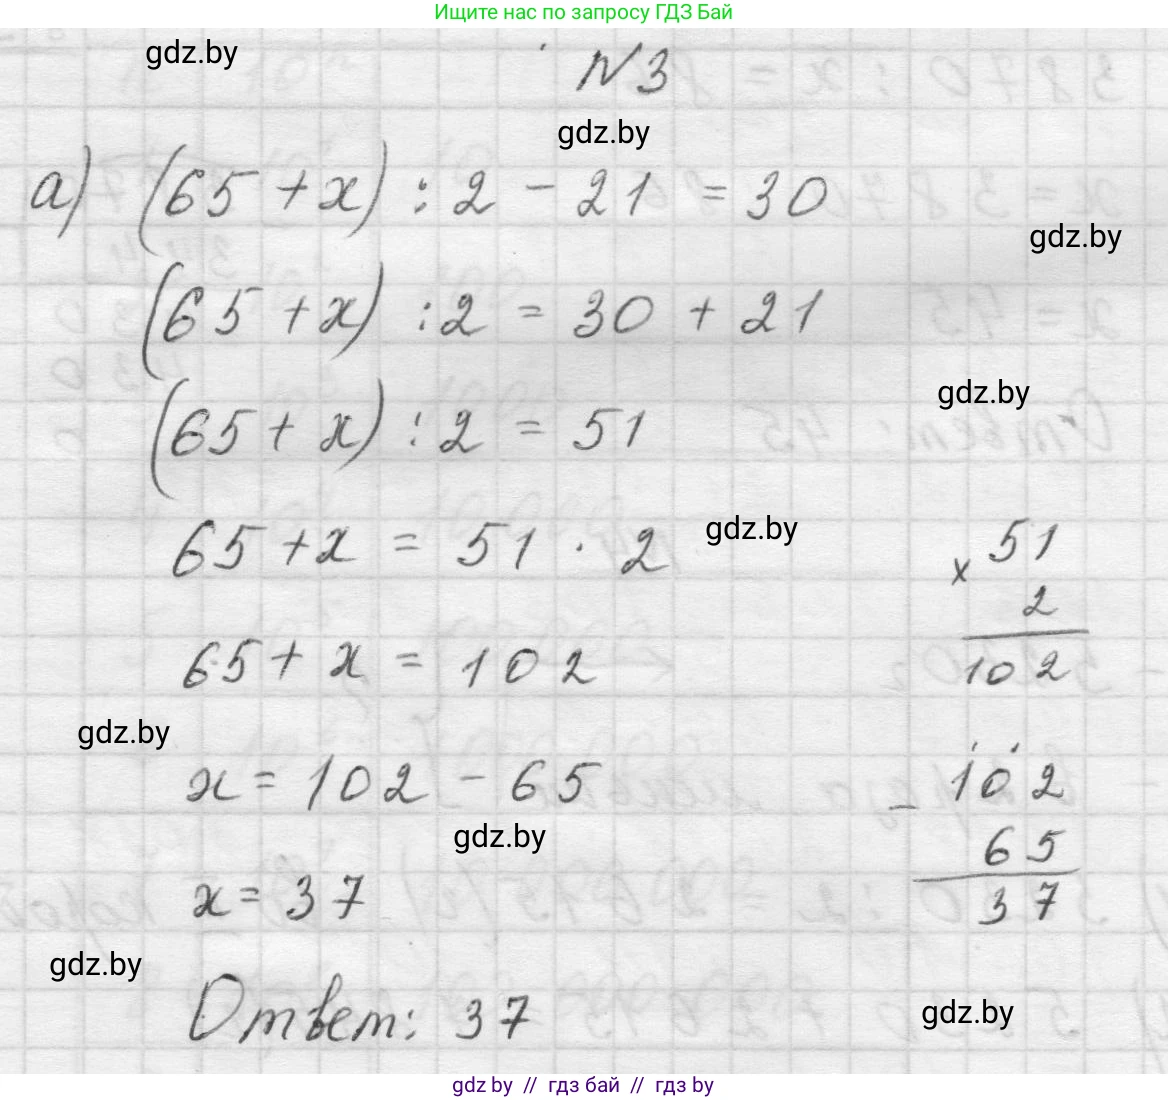 Ищите нас по запросу ГДЗ Бай
gdz.by
№3
gdz.by
а) (65 + x) : 2 - 21 = 30
gdz.by
(65 + x) : 2 = 30 + 21
gdz.by
(65 + x) : 2 = 51
65 + x = 51 · 2
gdz.by
51
x
2
102
65 + x = 102
gdz.by
x = 102 - 65
gdz.by
102
-
65
37
x = 37
gdz.by
Ответ: 37
gdz.by
gdz.by // гдз бай // гдз by